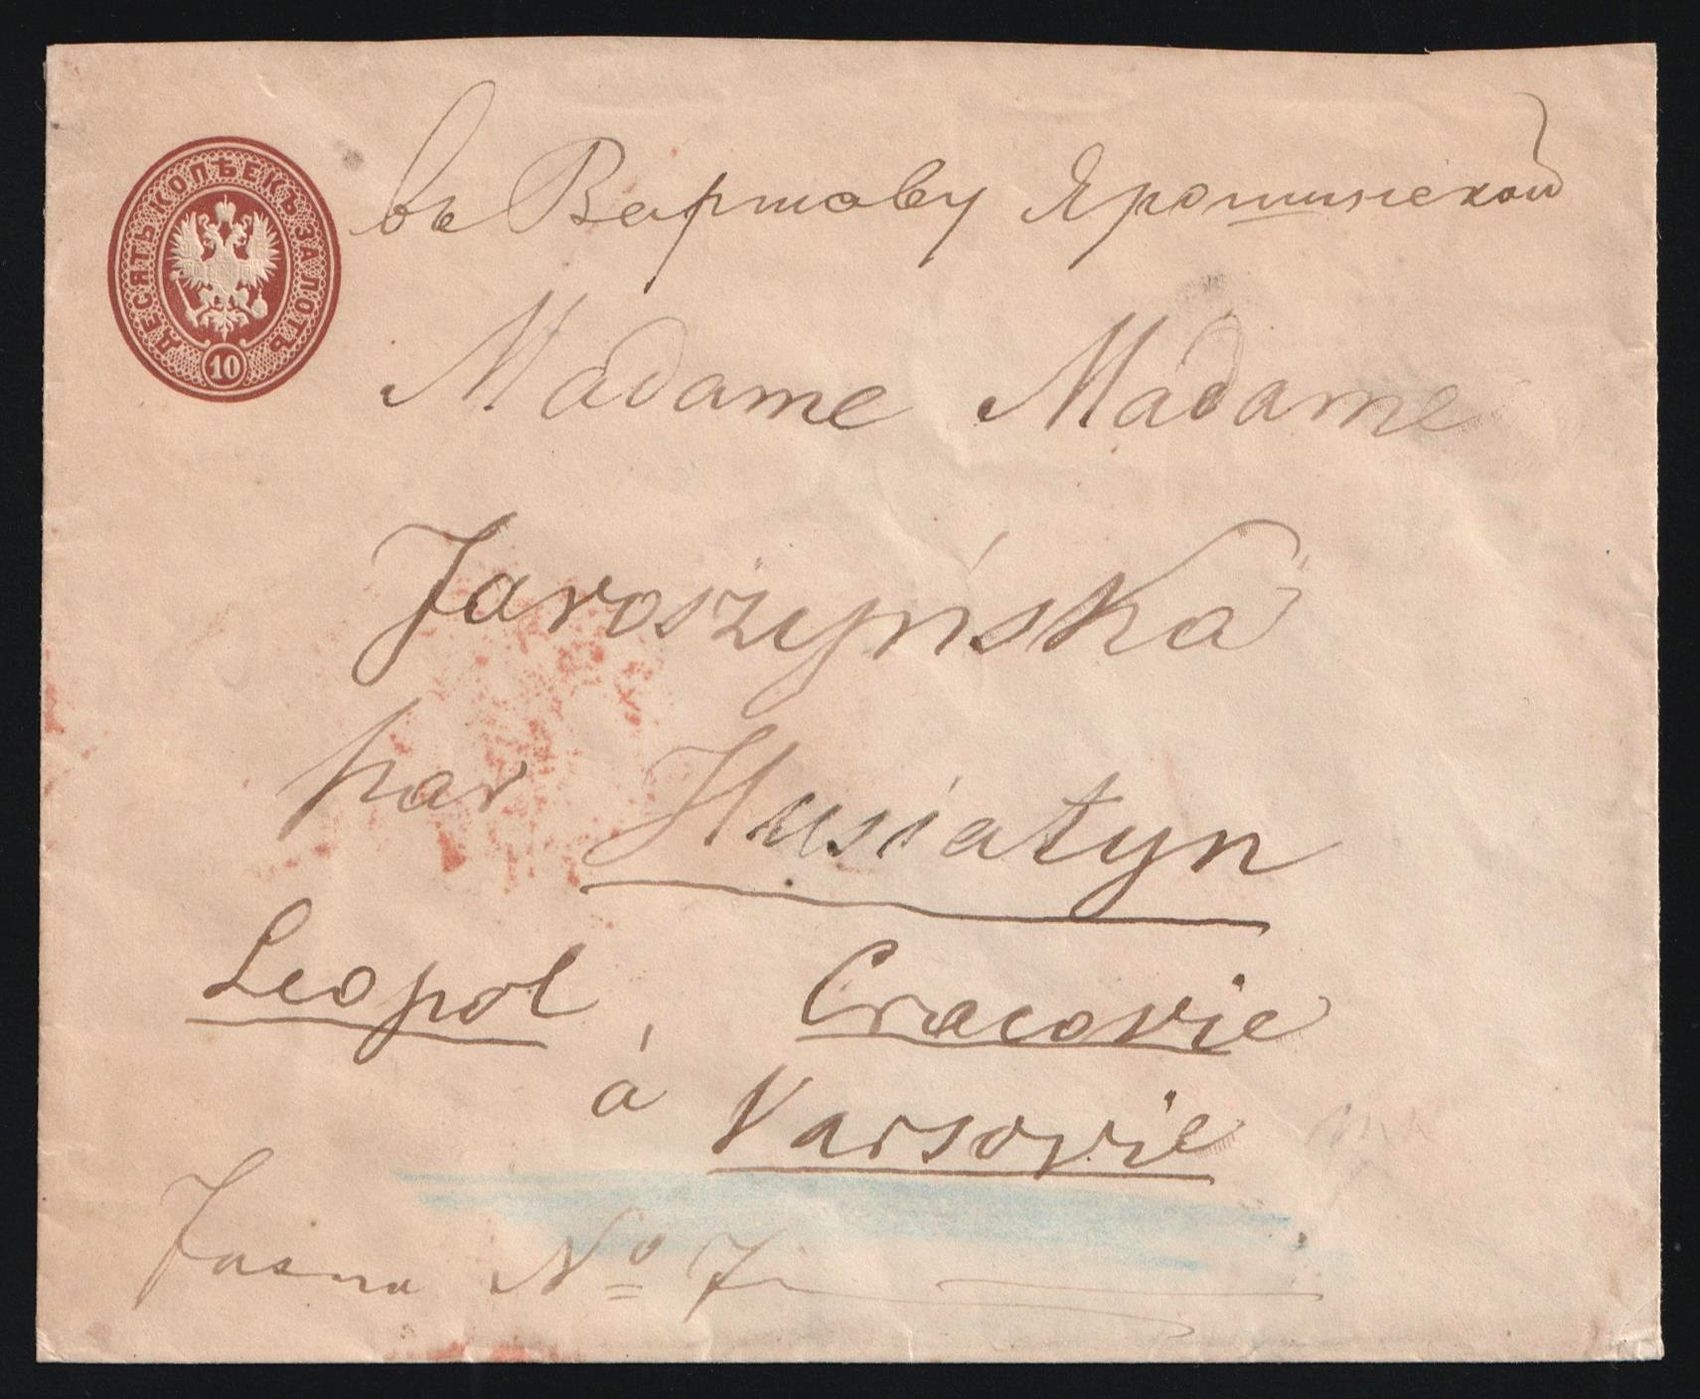 ДЕСЯТЬ КОПѢЕКЪ ЗА ЛОТЪ
10
въ Варшаву Ярошинской
Madame Madame
Jaroszyńska
par Husiatyn
Leopol, Cracovie
à Varsovie
Jasna No 7